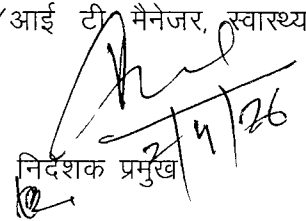 आई टी मैनेजर, स्वास्थ्य
2/4/26
निर्देशक प्रमुख